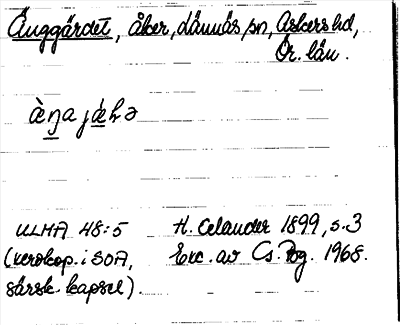 Änggärdet, åker, Lännäs sn, Askers hd,
Ör. län.
ὰŋa jǽhə
ULMA 48:5 H. Celander 1899, s. 3
(xerokop. i SOA, Exc. av Cs. Bog. 1968.
särsk. kapsel).